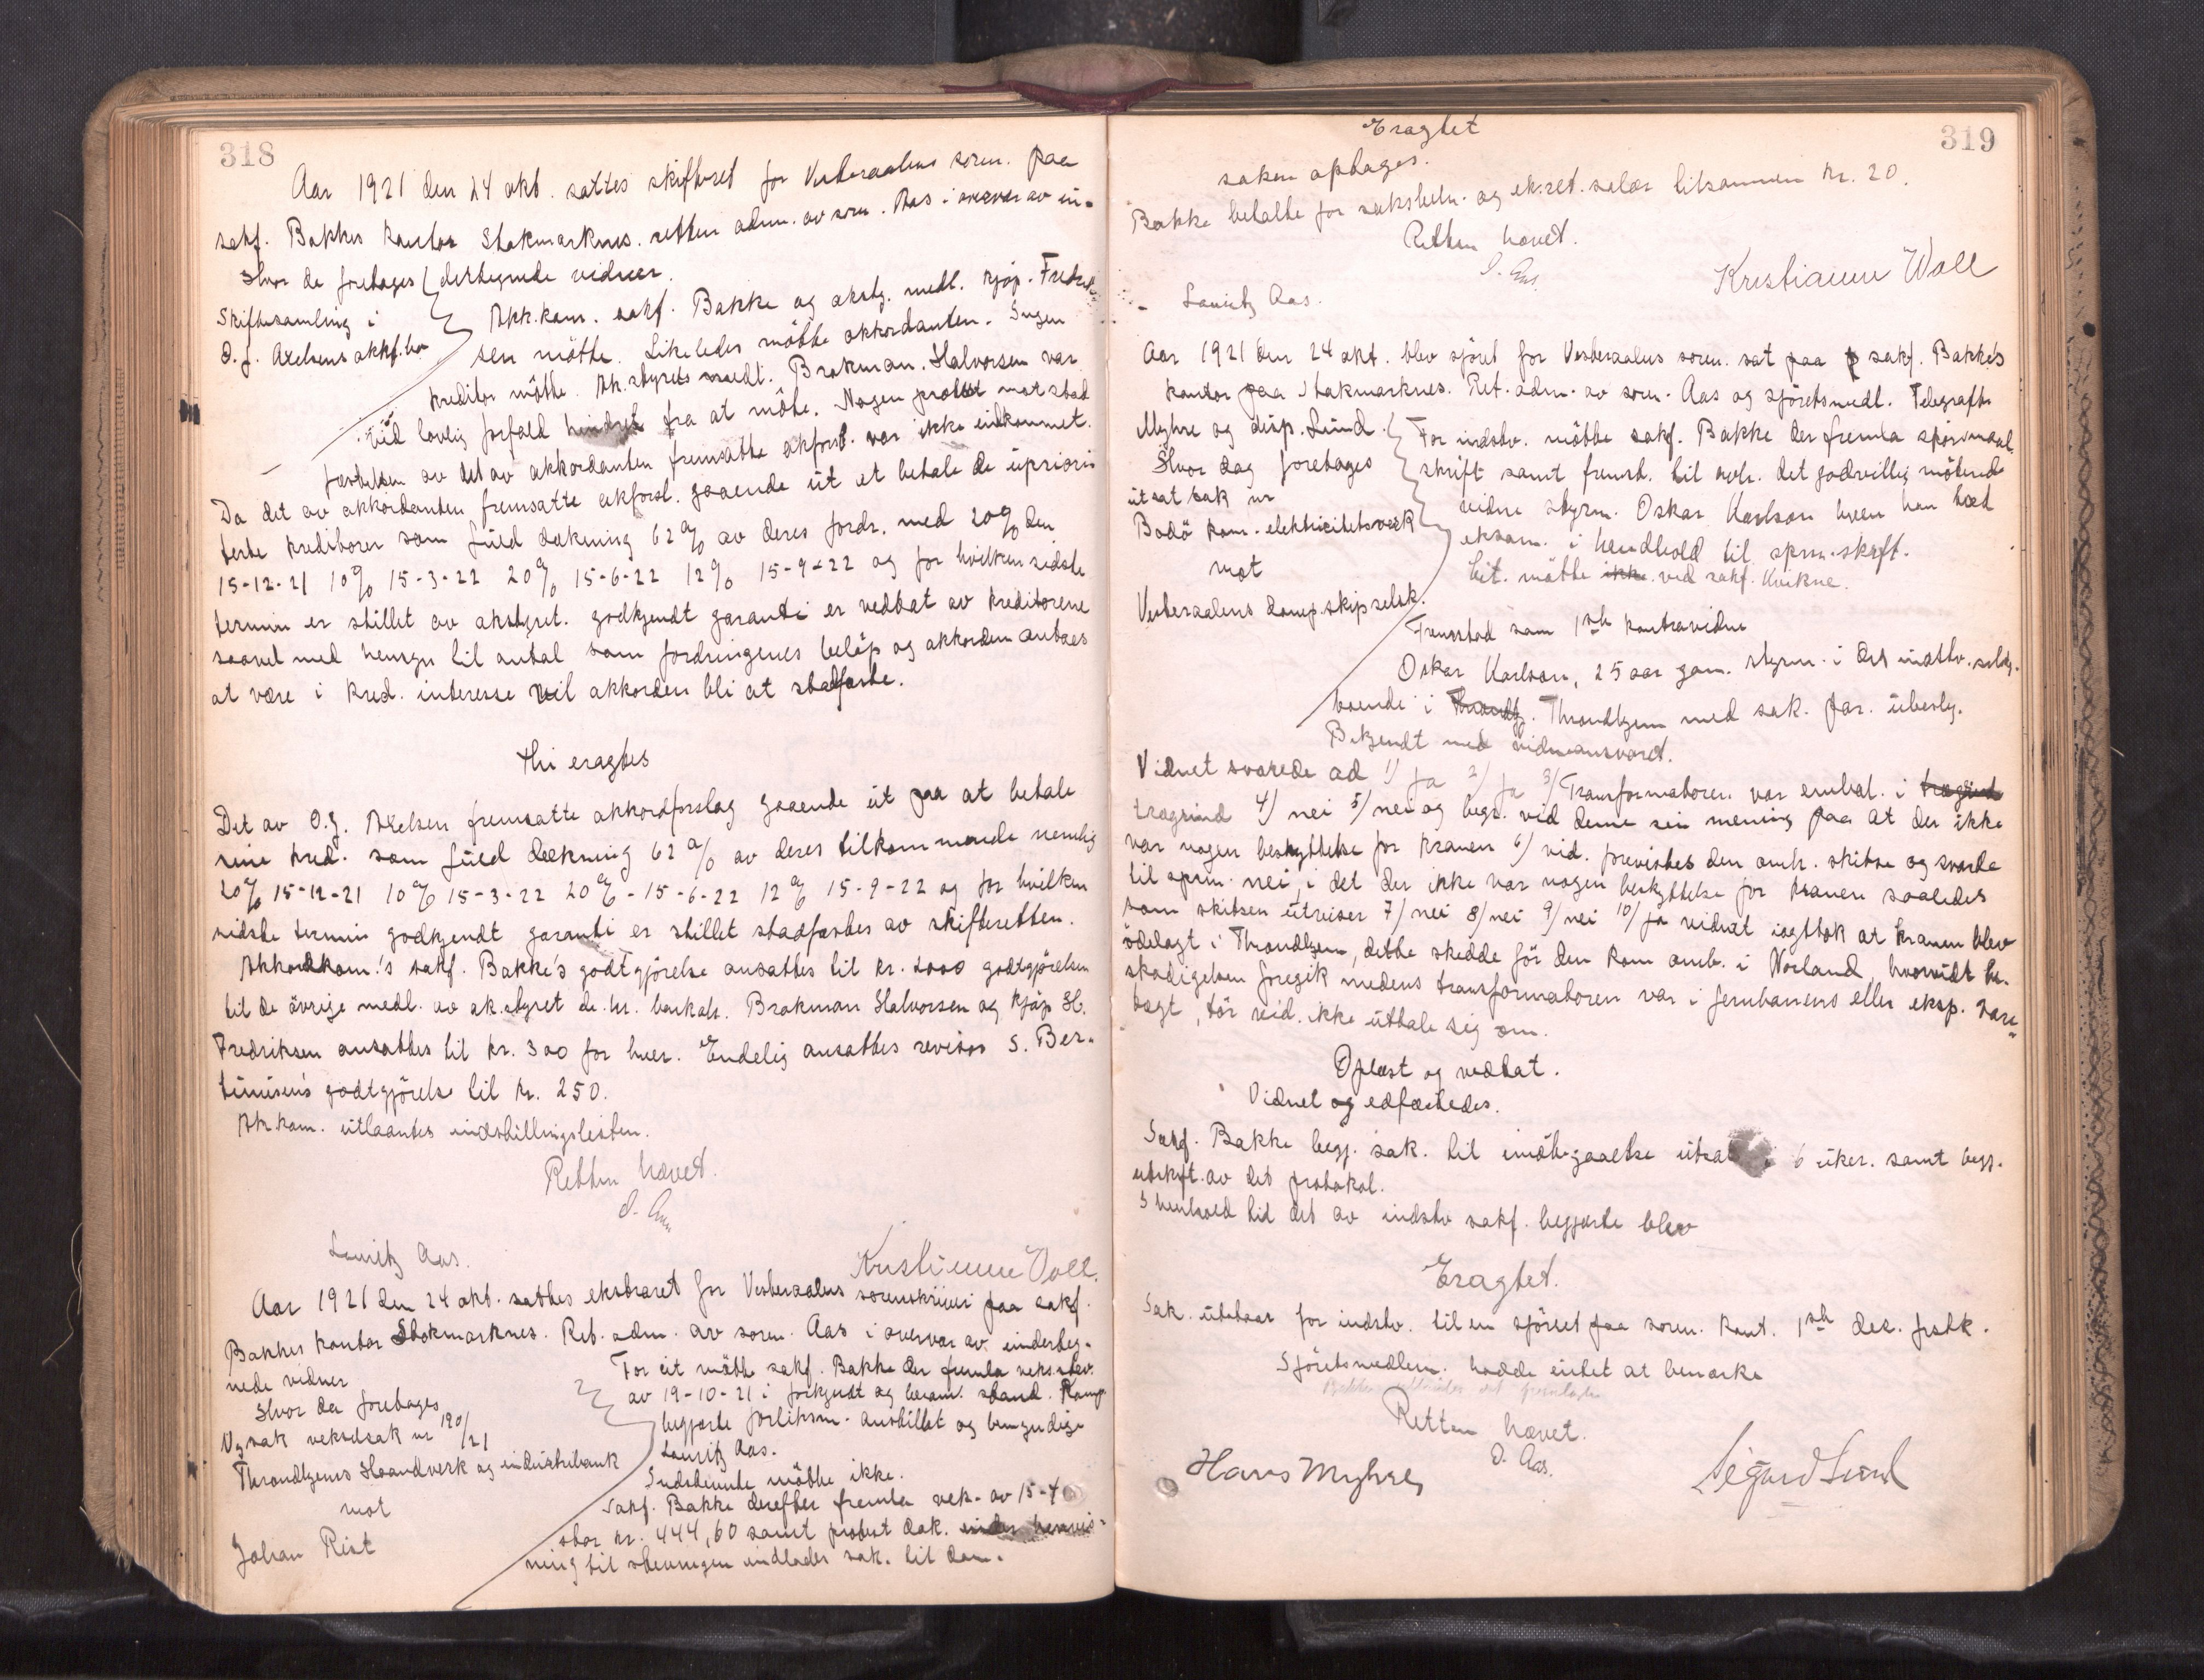 318
Aar 1921 den 24 okt. sattes skifteret for Vesteraalens soren. paa
sakf. Bakkes kontor Stokmarknes. retten adm. av soren. Aas i overvær av un-
Hvor da foretages dertegnede vidner.
Skiftesamling i
O. J. Axelsens akkf.bo
Akk.kom. sakf. Bakke og akstg. medl. kjøp. Fredrik-
sen møtte. Likeledes møtte akkordanten. Ingen
kreditor møtte. Ak.styrets medl. Brokman. Halvorsen var
ved lovlig forfald hindret fra at møte. Nogen protest mot stad
fæstelsen av det av akkordanten fremsatte akforsl. var ikke indkommet.
Da det av akkordanten fremsatte akforsl. gaaende ut at betale de upriori-
terte kreditorer som fuld dækning 62 % av deres fordr. med 20% den
15-12-21 10% 15-3-22 20% 15-6-22 12% 15-9-22 og for hvilken sidste
termin er stillet av akstyret. godkjendt garanti er vedtat av kreditorene
saavel med hensyn til antal som fordringenes beløp og akkorden antaes
at være i kred. interesse vil akkorden bli at stadfæste.
Thi eragtes
Det av O. J. Axelsen fremsatte akkordforslag gaaende ut paa at betale
sine kred. som fuld dækning 62 % av deres tilkommende nemlig
20% 15-12-21 10% 15-3-22 20% - 15-6-22 12% 15-9-22 og for hvilken
sidste termin godkjendt garanti er stillet stadfæstes av skifteretten.
Akkordkom.'s sakf. Bakke's godtgjørelse ansattes til kr. 2000 godtgjørelsen
til de øvrige medl. av ak.styret de hr. bankak. Brokman Halvorsen og kjøp H.
Fredriksen ansattes til kr. 300 for hver. Endelig ansattes revisor S. Ber-
tinusen's godtgjørelse til kr. 250.
Ak.kom. utlaantes indstillingslisten.
Retten hævet.
O. Aas
Lauritz Aas. Kristianne Woll.
Aar 1921 den 24 okt. sattes ekstraret for Vesteraalens sorenskriveri paa sakf.
Bakkes kontor Stokmarknes. Ret. adm. av soren. Aas i overvær av underteg-
nede vidner
Hvor da foretages
Ny sak vekselsak nr 190/21
Throndhjems Haandverk og industribank
mot
Johan Rist
For cit. møtte sakf. Bakke der fremla veks.stev.
av 19-10-21 i forkyndt og beram. stand.
begjærte forliksm. anstillet og
Lauritz Aas.
Indstevnte møtte ikke.
Sakf. Bakke derefter fremla vek. av 15-4
stor kr. 444,60 samt protest dok. under henvis-
ning til stevningen indlades sak. til dom.
319
Eragtet
saken optages.
Bakke betalte for saksbeh. og ek.ret. salær tilsammen kr. 20.
Retten hævet.
O. Aas.
Lauritz Aas. Kristianne Woll
Aar 1921 den 24 okt. blev sjøret for Vesteraalens soren. sat paa sakf. Bakke's
kontor paa Stokmarknes. Ret. adm. av soren. Aas og sjøretsmedl. Telegrafb.
Myhre og disp. Lund.
Hvor dag foretages
utsat sak nr
Bodø kom. elektricitetsverk
mot
Vesteraalens dampskipselsk.
For indstv. møtte sakf. Bakke der fremla spørsmaal-
skrift samt fremst. til avh. det godvillig møtende
vidne styrm. Oskar Karlson hven han lod
eksam. i henhold til spm.skrift.
Cit. møtte ikke. ved sakf. Kvikne.
Fremstod som 1ste kontravidne
Oskar Karlson, 25 aar gam. styrm. i det indstv. selsk.
boende i Throndhj. Throndhjem med sak. par. ubesly.
Bekjendt med vidneansvaret.
Vidnet svarede ad 1) Ja 2) Ja 3) Transformatoren var embal. i trægrind
trægrind 4) nei 5) nei og begr. vid denne sin mening paa at der ikke
var nogen beskyttelse for kranen 6) vid. forevistes den omh. skitse og svarte
til spm. nei, i det der ikke var nogen beskyttelse for kranen saaledes
som skitsen utviser 7) nei 8) nei 9) nei 10) ja vidnet iagttok at kranen blev
ødelagt i Throndhjem, dette skedde før den kom omb. i Norland, hvorvidt be-
skadigelsen foregik medens transformatoren var i Jernbanens eller eksp. vare-
tægt, tør vid. ikke uttale sig om.
Oplæst og vedtat.
Vidnet og edfæstedes.
Sakf. Bakke begj. sak. til imøtegaaelse utsat i 6 uker. samt begj.
utskrift. av det protokol.
I henhold til det av indstv sakf. begjærte blev
Eragtet.
Sak. utstaar for indstv. til en sjøret paa soren. kont. 1ste des. frstk.
Sjøretsmedlem. hadde intet at bemærke
Retten hævet.
O. Aas.
Hans Myhre Sigurd Lund